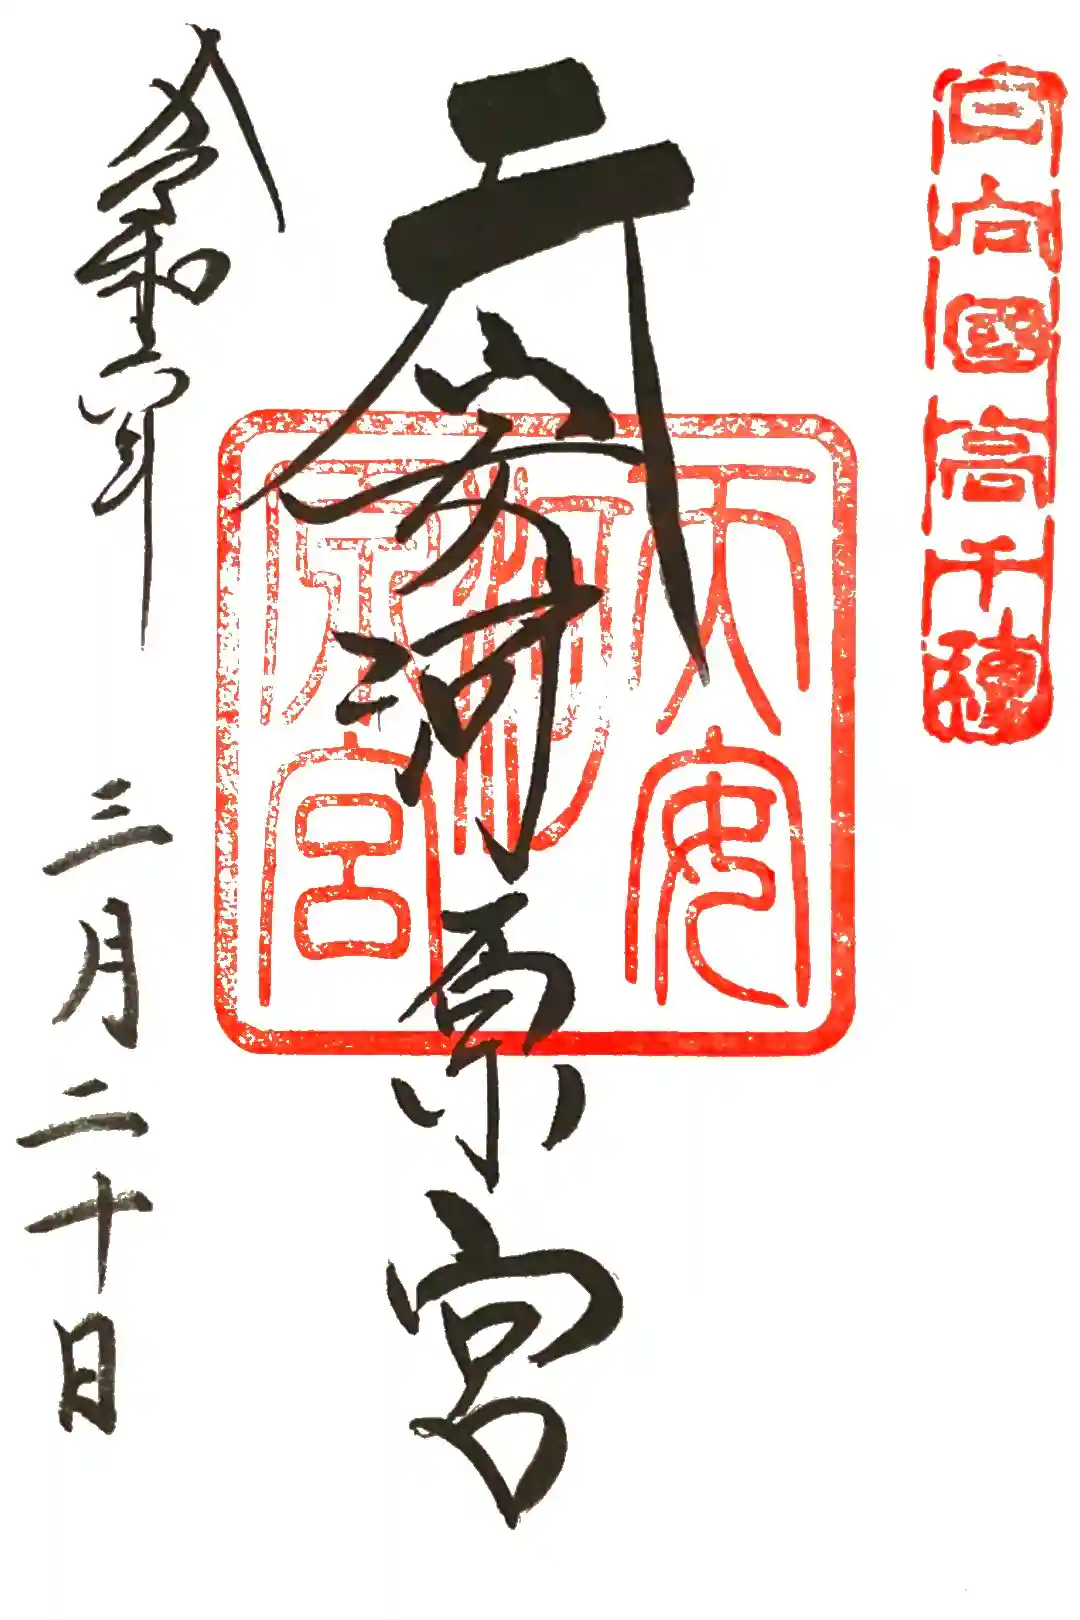 日向國高千穂
天安河原宮
天安
河
原宮
令和六年
三月二十日